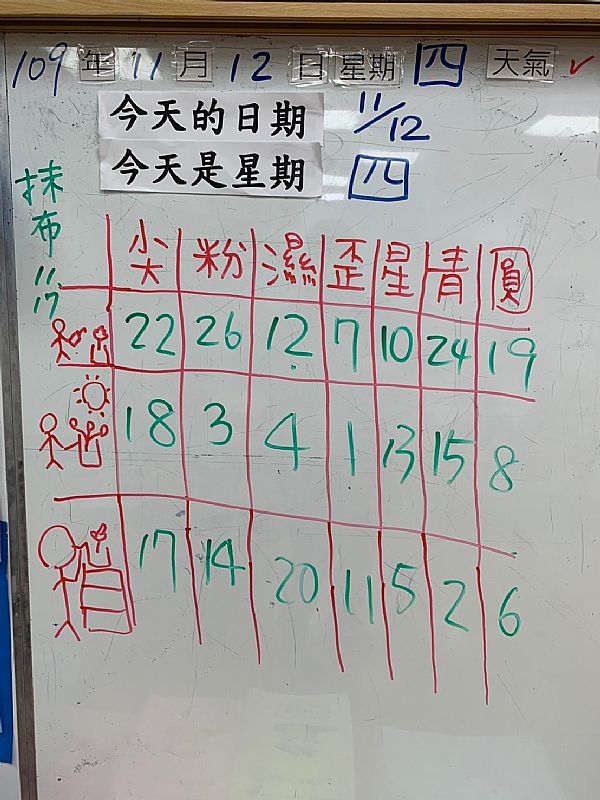 109 年 11 月 12 日 星期 四 天氣 ✓
今天的日期 11/12
今天是星期 四
抹布 11/17
尖 粉 濕 歪 星 青 圓
22 26 12 7 10 24 19
18 3 4 1 13 15 8
17 14 20 11 5 2 6